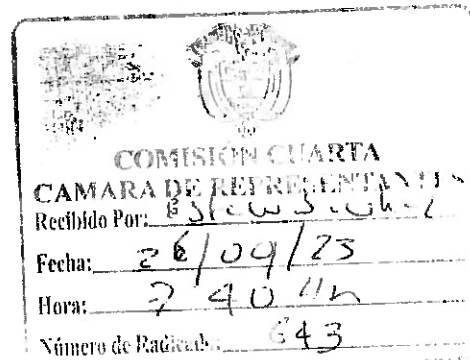 COMISIÓN CUARTA
CAMARA DE REPRESENTANTES
Recibido Por:
Fecha: 26/04/23
Hora: 2 40
Número de Radicado: 643